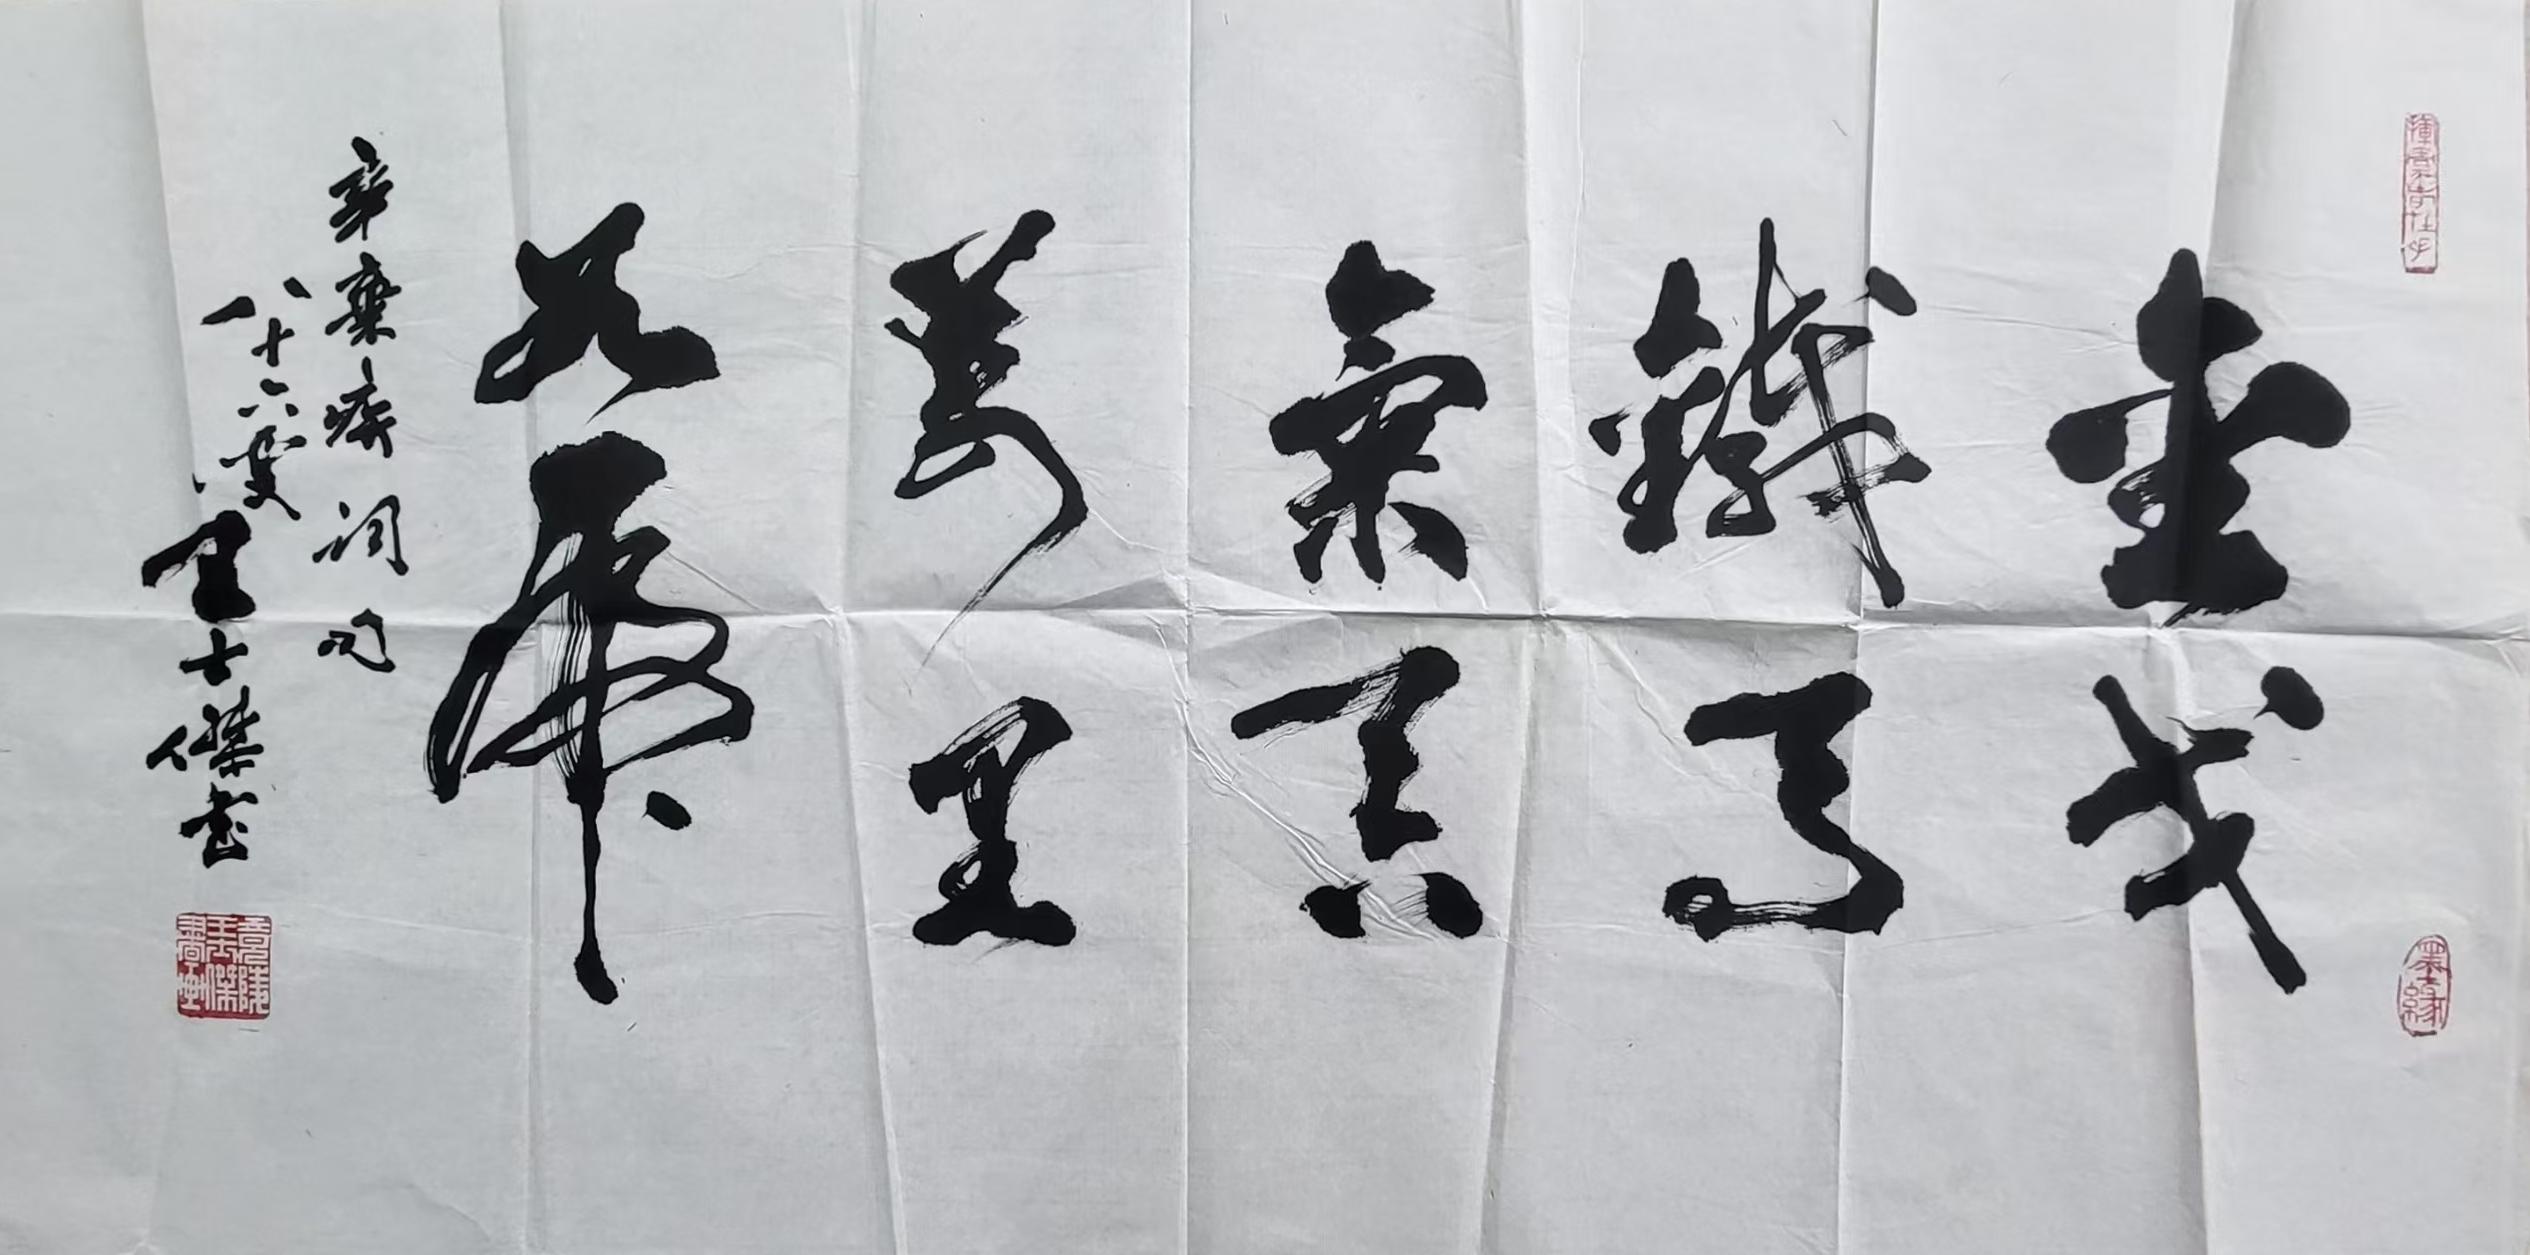 金戈
鐵馬
氣吞
萬里
如虎
辛棄疾詞句
八十六叟王士傑書
墨緣